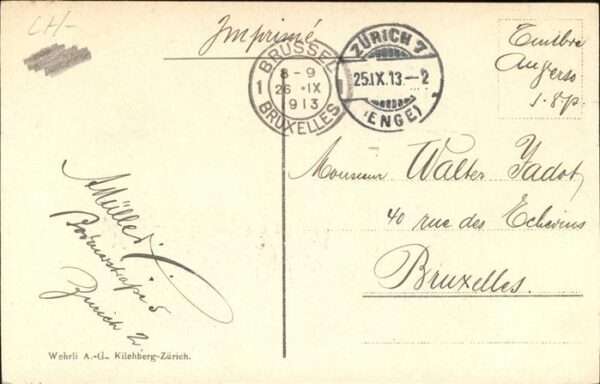 CH-
Imprimé
BRUSSEL
1
8-9
26 IX
913
BRUXELLES
ZÜRICH 7
25.IX.13-2
(ENGE)
Timbre
au verso
s.v.p.
Monsieur Walter Jadot
40 rue des Echevins
Bruxelles.
A Müller
5
Zürich 2
Wehrli A.-G., Kilchberg-Zürich.